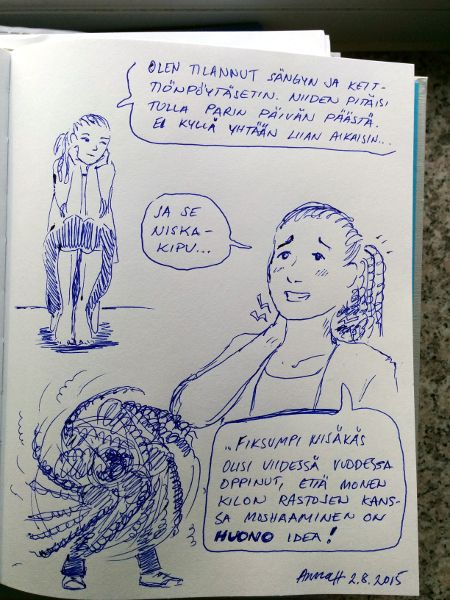 OLEN TILANNUT SÄNGYN JA KEIT-
TIÖNPÖYTÄSETIN. NIIDEN PITÄISI
TULLA PARIN PÄIVÄN PÄÄSTÄ.
EI KYLLÄ YHTÄÄN LIIAN AIKAISIN...
JA SE
NISKA-
KIPU...
..FIKSUMPI NISÄKÄS
OLISI VIIDESSÄ VUODESSA
OPPINUT, ETTÄ MONEN
KILON RASTOJEN KANS-
SA MOSHAAMINEN ON
HUONO IDEA!
AnnaH 2.8.2015